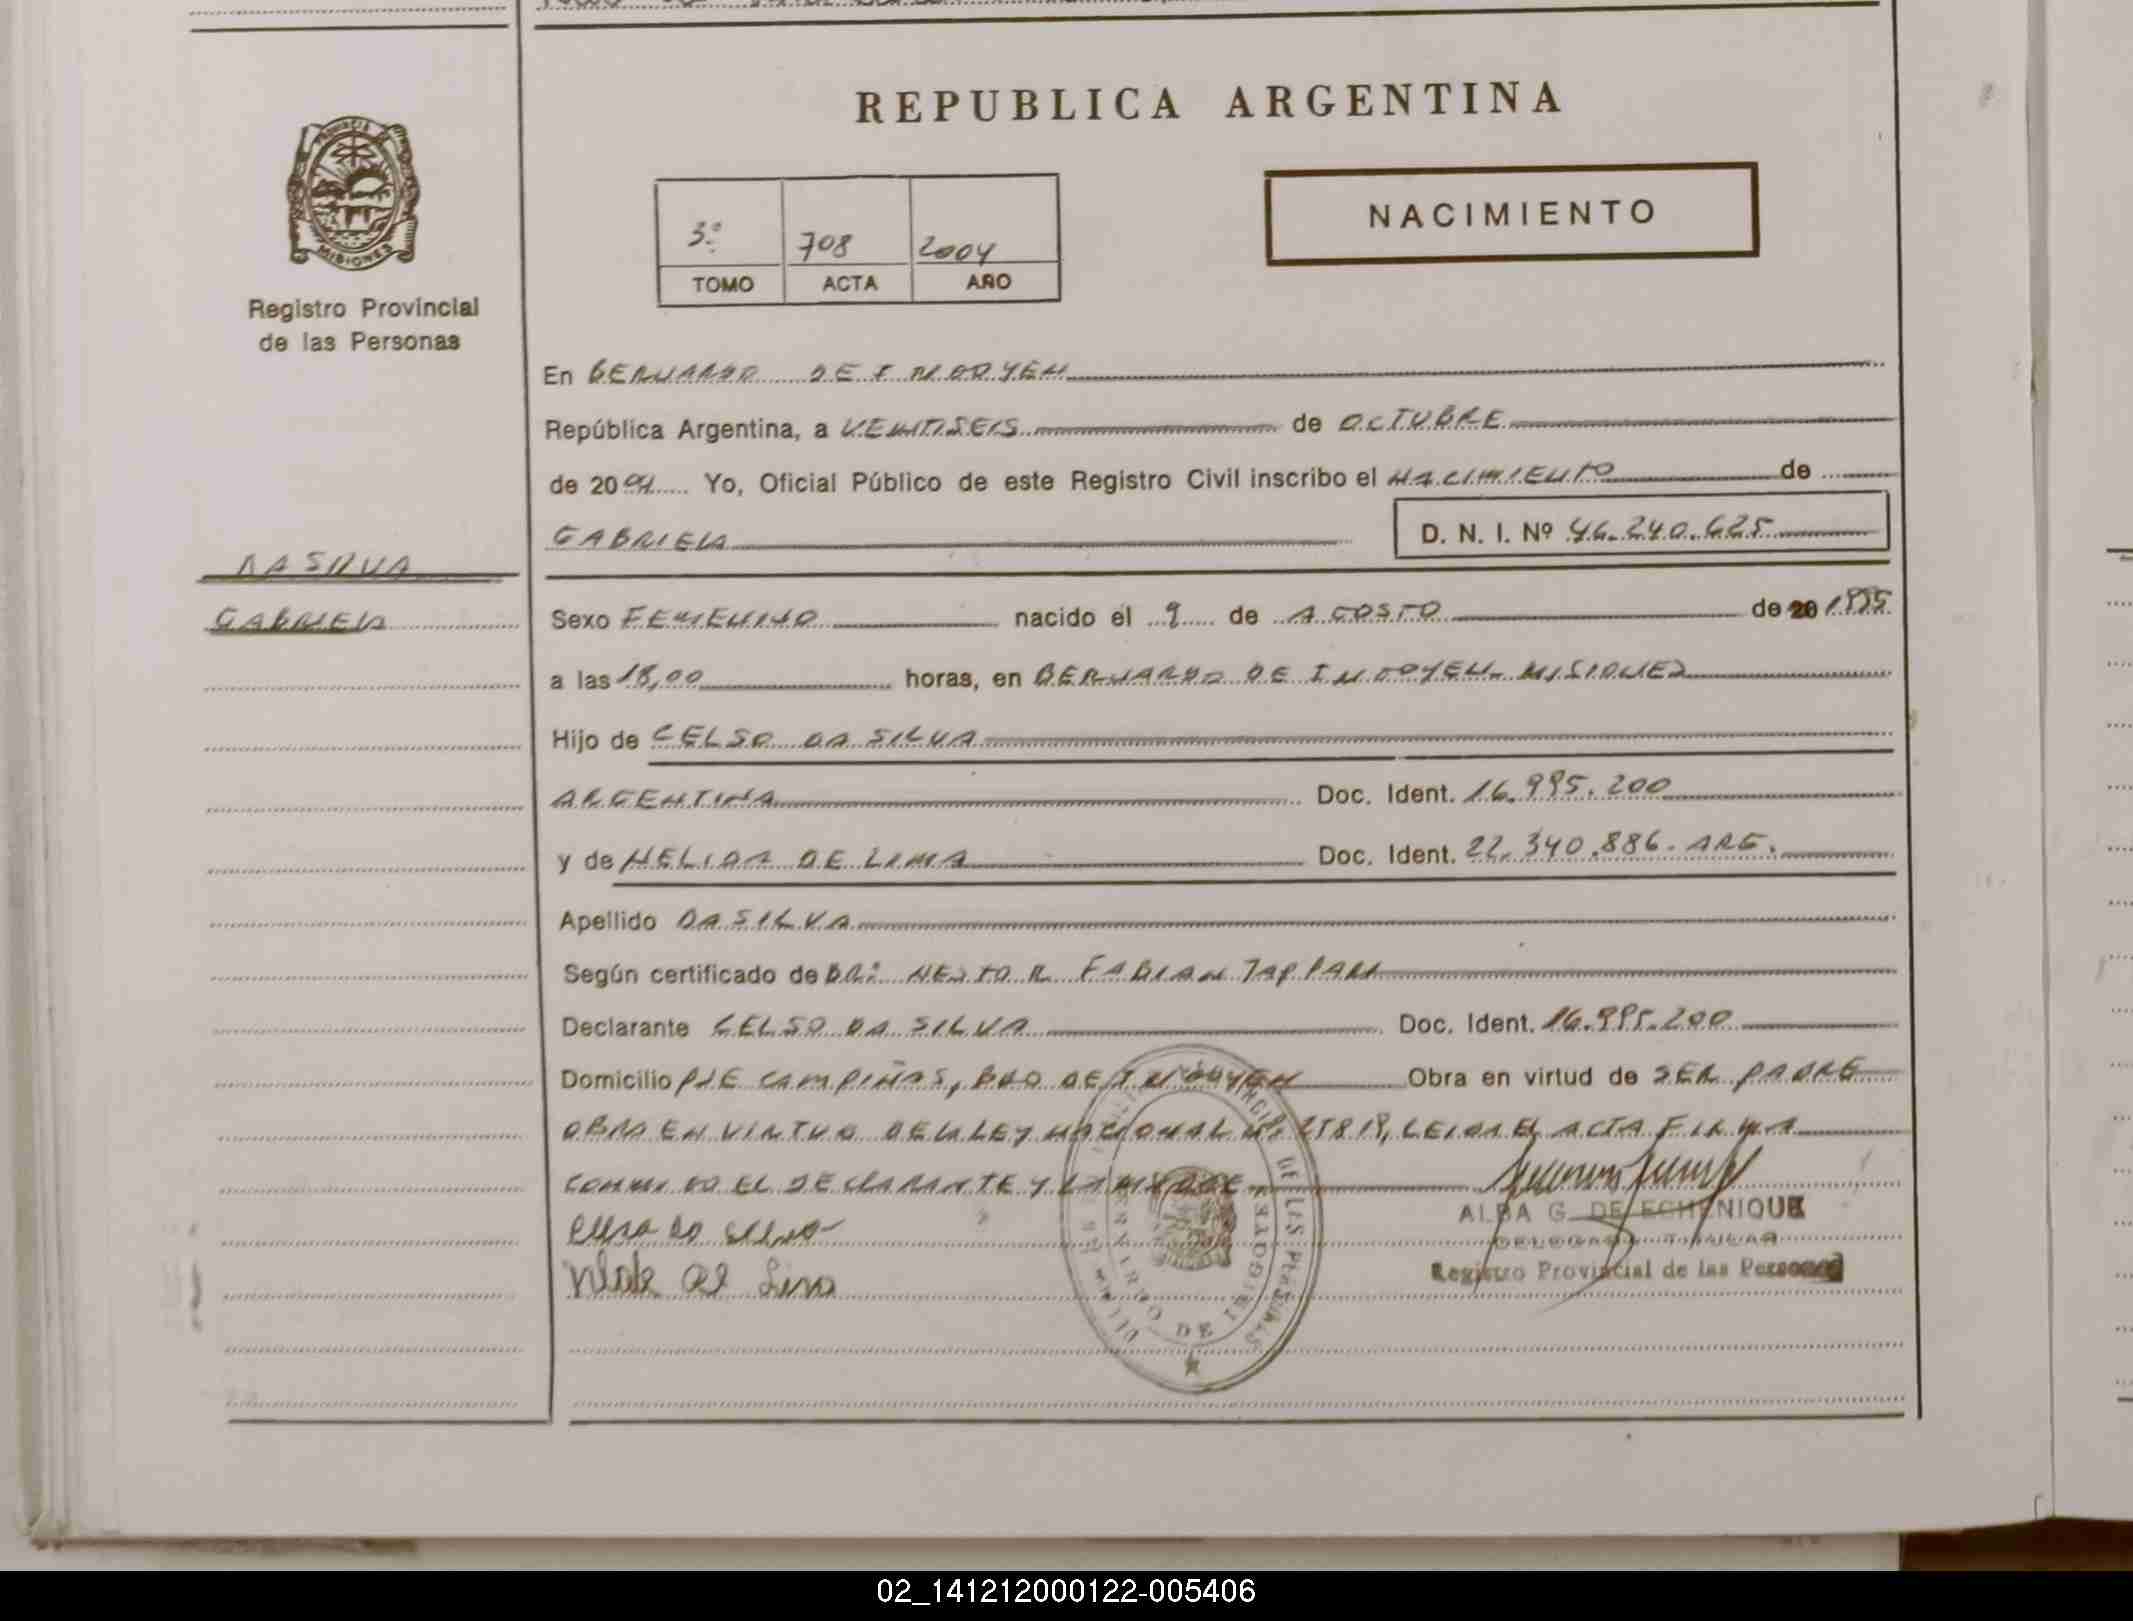 REPUBLICA ARGENTINA
PROVINCIA DE
MISIONES
Registro Provincial
de las Personas
3º 708 2004
TOMO ACTA AÑO
NACIMIENTO
En BERNARDO DE IRIGOYEN
República Argentina, a VEINTISEIS de OCTUBRE
de 2004 Yo, Oficial Público de este Registro Civil inscribo el NACIMIENTO de
GABRIELA D. N. I. Nº 46.240.625
DA SILVA
GABRIELA
Sexo FEMENINO nacido el 9 de AGOSTO de 20 1995
a las 18,00 horas, en BERNARDO DE IRIGOYEN - MISIONES
Hijo de CELSO DA SILVA
ARGENTINA Doc. Ident. 16.995.200
y de NELIDA DE LIMA Doc. Ident. 22.340.886. ARG.
Apellido DA SILVA
Según certificado de DR: NESTOR FABIAN
Declarante CELSO DA SILVA Doc. Ident. 16.995.200
Domicilio PJE CAMPIÑAS, BDO DE IRIGOYEN Obra en virtud de SER PADRE
OBRA EN VIRTUD DE LA LEY NACIONAL Nº 25819, LEIDA EL ACTA FIRMA
CONMIGO EL DECLARANTE Y LA MADRE
ALBA G. DE ECHENIQUE
DELEGADA TITULAR
Registro Provincial de las Personas
02_141212000122-005406